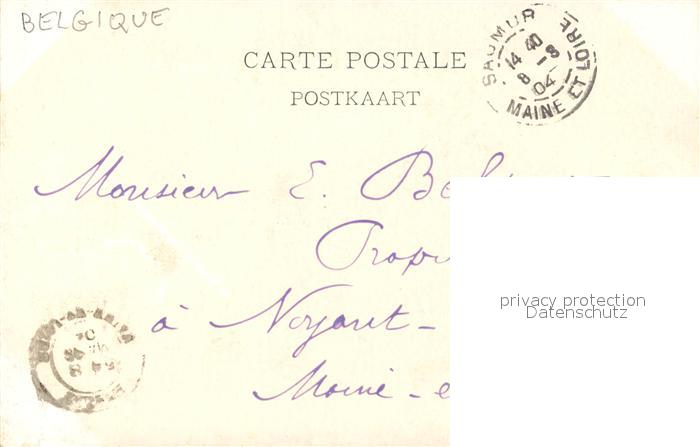 BELGIQUE
CARTE POSTALE
POSTKAART
SAUMUR
14 40
8 - 8
04
MAINE ET LOIRE
Monsieur E. Be
Prop
à Noyant-
Maine-e
privacy protection
Datenschutz